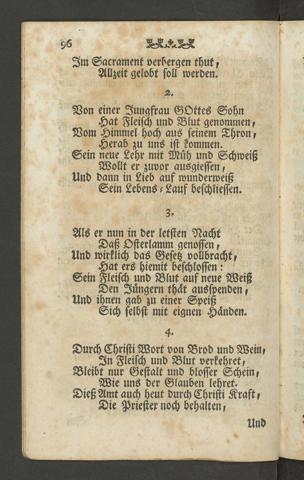 96
Im Sacrament verbergen thut,
Allzeit gelobt soll werden.
2.
Von einer Jungfrau GOttes Sohn
Hat Fleisch und Blut genommen,
Vom Himmel hoch aus seinem Thron,
Herab zu uns ist kommen.
Sein neue Lehr mit Müh und Schweiß
Wollt er zuvor ausgiessen,
Und dann in Lieb auf wunderweiß
Sein Lebens-Lauf beschliessen.
3.
Als er nun in der letsten Nacht
Daß Osterlamm genossen,
Und wirklich das Gesetz vollbracht,
Hat ers hiemit beschlossen:
Sein Fleisch und Blut auf neue Weiß
Den Jüngern thät ausspenden,
Und ihnen gab zu einer Speiß
Sich selbst mit eignen Händen.
4.
Durch Christi Wort von Brod und Wein,
In Fleisch und Blut verkehret,
Bleibt nur Gestalt und blosser Schein,
Wie uns der Glauben lehret.
Dieß Amt auch heut durch Christi Kraft,
Die Priester noch behalten,
Und